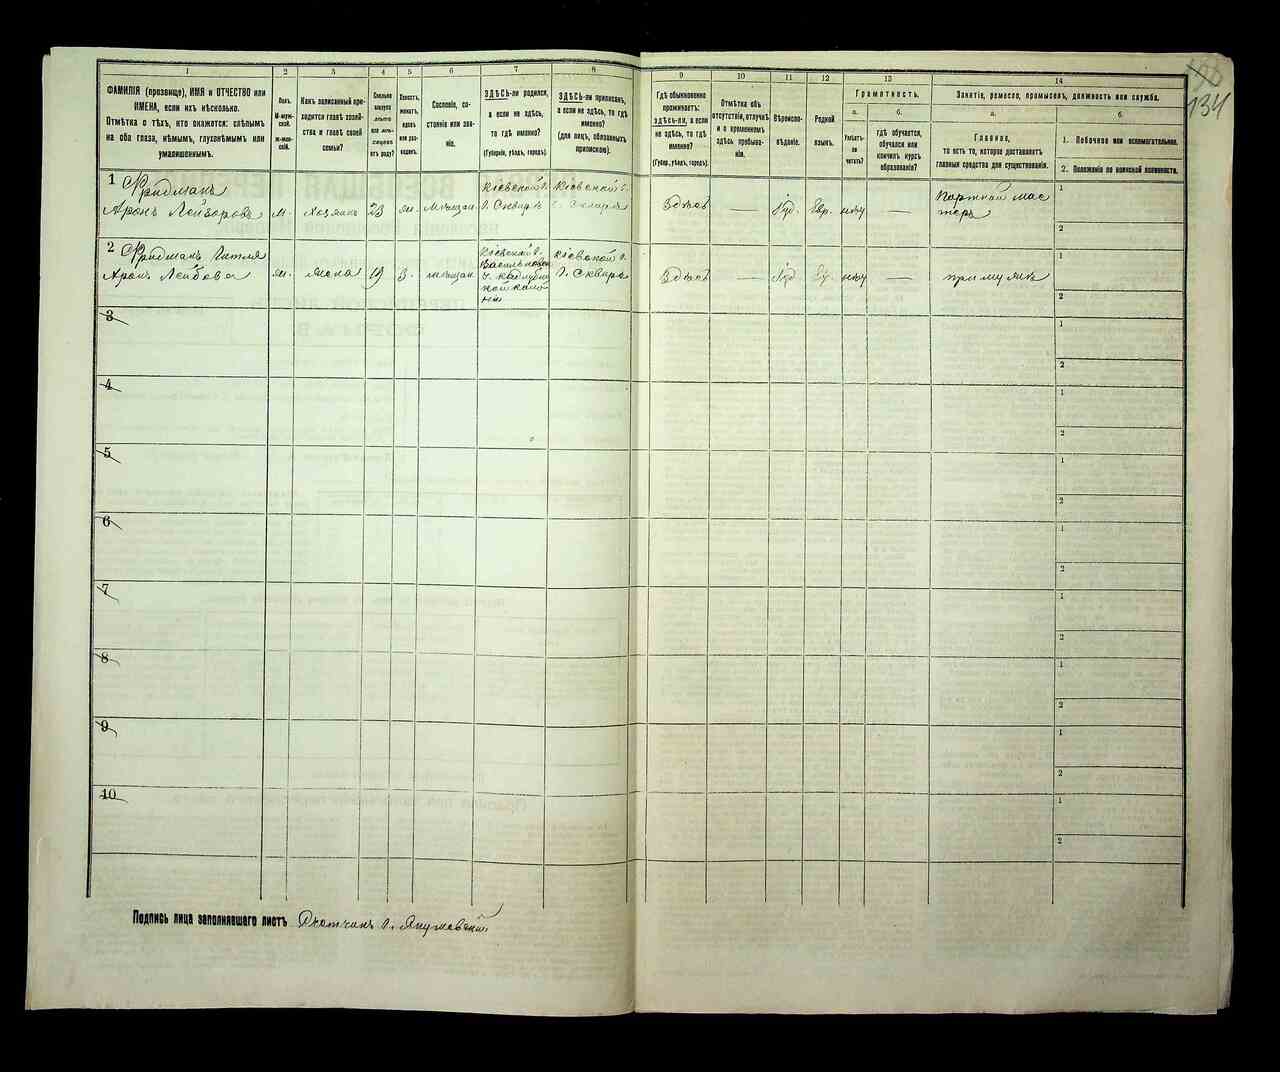 134
1
2
3
4
5
6
7
8
9
10
11
12
13
14
ФАМИЛІЯ (прозвище), ИМЯ и ОТЧЕСТВО или
ИМЕНА, если ихъ нѣсколько.
Отмѣтка о тѣхъ, кто окажется: слѣпымъ
на оба глаза, нѣмымъ, глухонѣмымъ или
умалишеннымъ.
Полъ.
М-муж-
ской.
Ж-жен-
скій.
Какъ записанный при-
ходится главѣ хозяй-
ства и главѣ своей
семьи?
Сколько
минуло
лѣтъ
или мѣ-
сяцевъ
отъ роду?
Холостъ,
женатъ,
вдовъ
или раз-
веденъ.
Сословіе, со-
стояніе или зва-
ніе.
ЗДѢСЬ-ли родился,
а если не здѣсь,
то гдѣ именно?
(Губернія, уѣздъ, городъ).
ЗДѢСЬ-ли приписанъ,
а если не здѣсь, то гдѣ
именно?
(для лицъ, обязанныхъ
припискою).
Гдѣ обыкновенно
проживаетъ:
ЗДѢСЬ-ли, а если
не здѣсь, то гдѣ
именно?
(Губер., уѣздъ, городъ).
Отмѣтка объ
отсутствіи, отлучкѣ
и о временномъ
здѣсь пребыва-
ніи.
Вѣроиспо-
вѣданіе.
Родной
языкъ.
Грамотность.
а.
Умѣетъ-
ли
читать?
б.
гдѣ обучается,
обучался или
кончилъ курсъ
образованія?
Занятіе, ремесло, промыселъ, должность или служба.
а.
Главное,
то есть то, которое доставляетъ
главныя средства для существованія.
б.
1. Побочное или вспомогательное.
2. Положеніе по воинской повинности.
1 Фридманъ
Аронъ Лейзоровъ м. Хозяинъ 23 ж. Мѣщан. Кіевской г. г. Сквирѣ Кіевской г. г. Сквирѣ Здѣсь — Іуд. Евр. нѣт — Партной мас
теръ
1
2
2 Фридманъ Гитля
Аронъ Лейбова ж. жена 19 З. мѣщан. Кіевской г.
Васильков
у.
ной коло
ніи
Кіевской г.
г. Сквира
Здѣсь — Іуд Ев. нѣт — при мужѣ
1
2
3
1
2
4
1
2
5
1
2
6
1
2
7
1
2
8
1
2
9
1
2
10
1
2
Подпись лица заполнявшаго листъ Счетчикъ